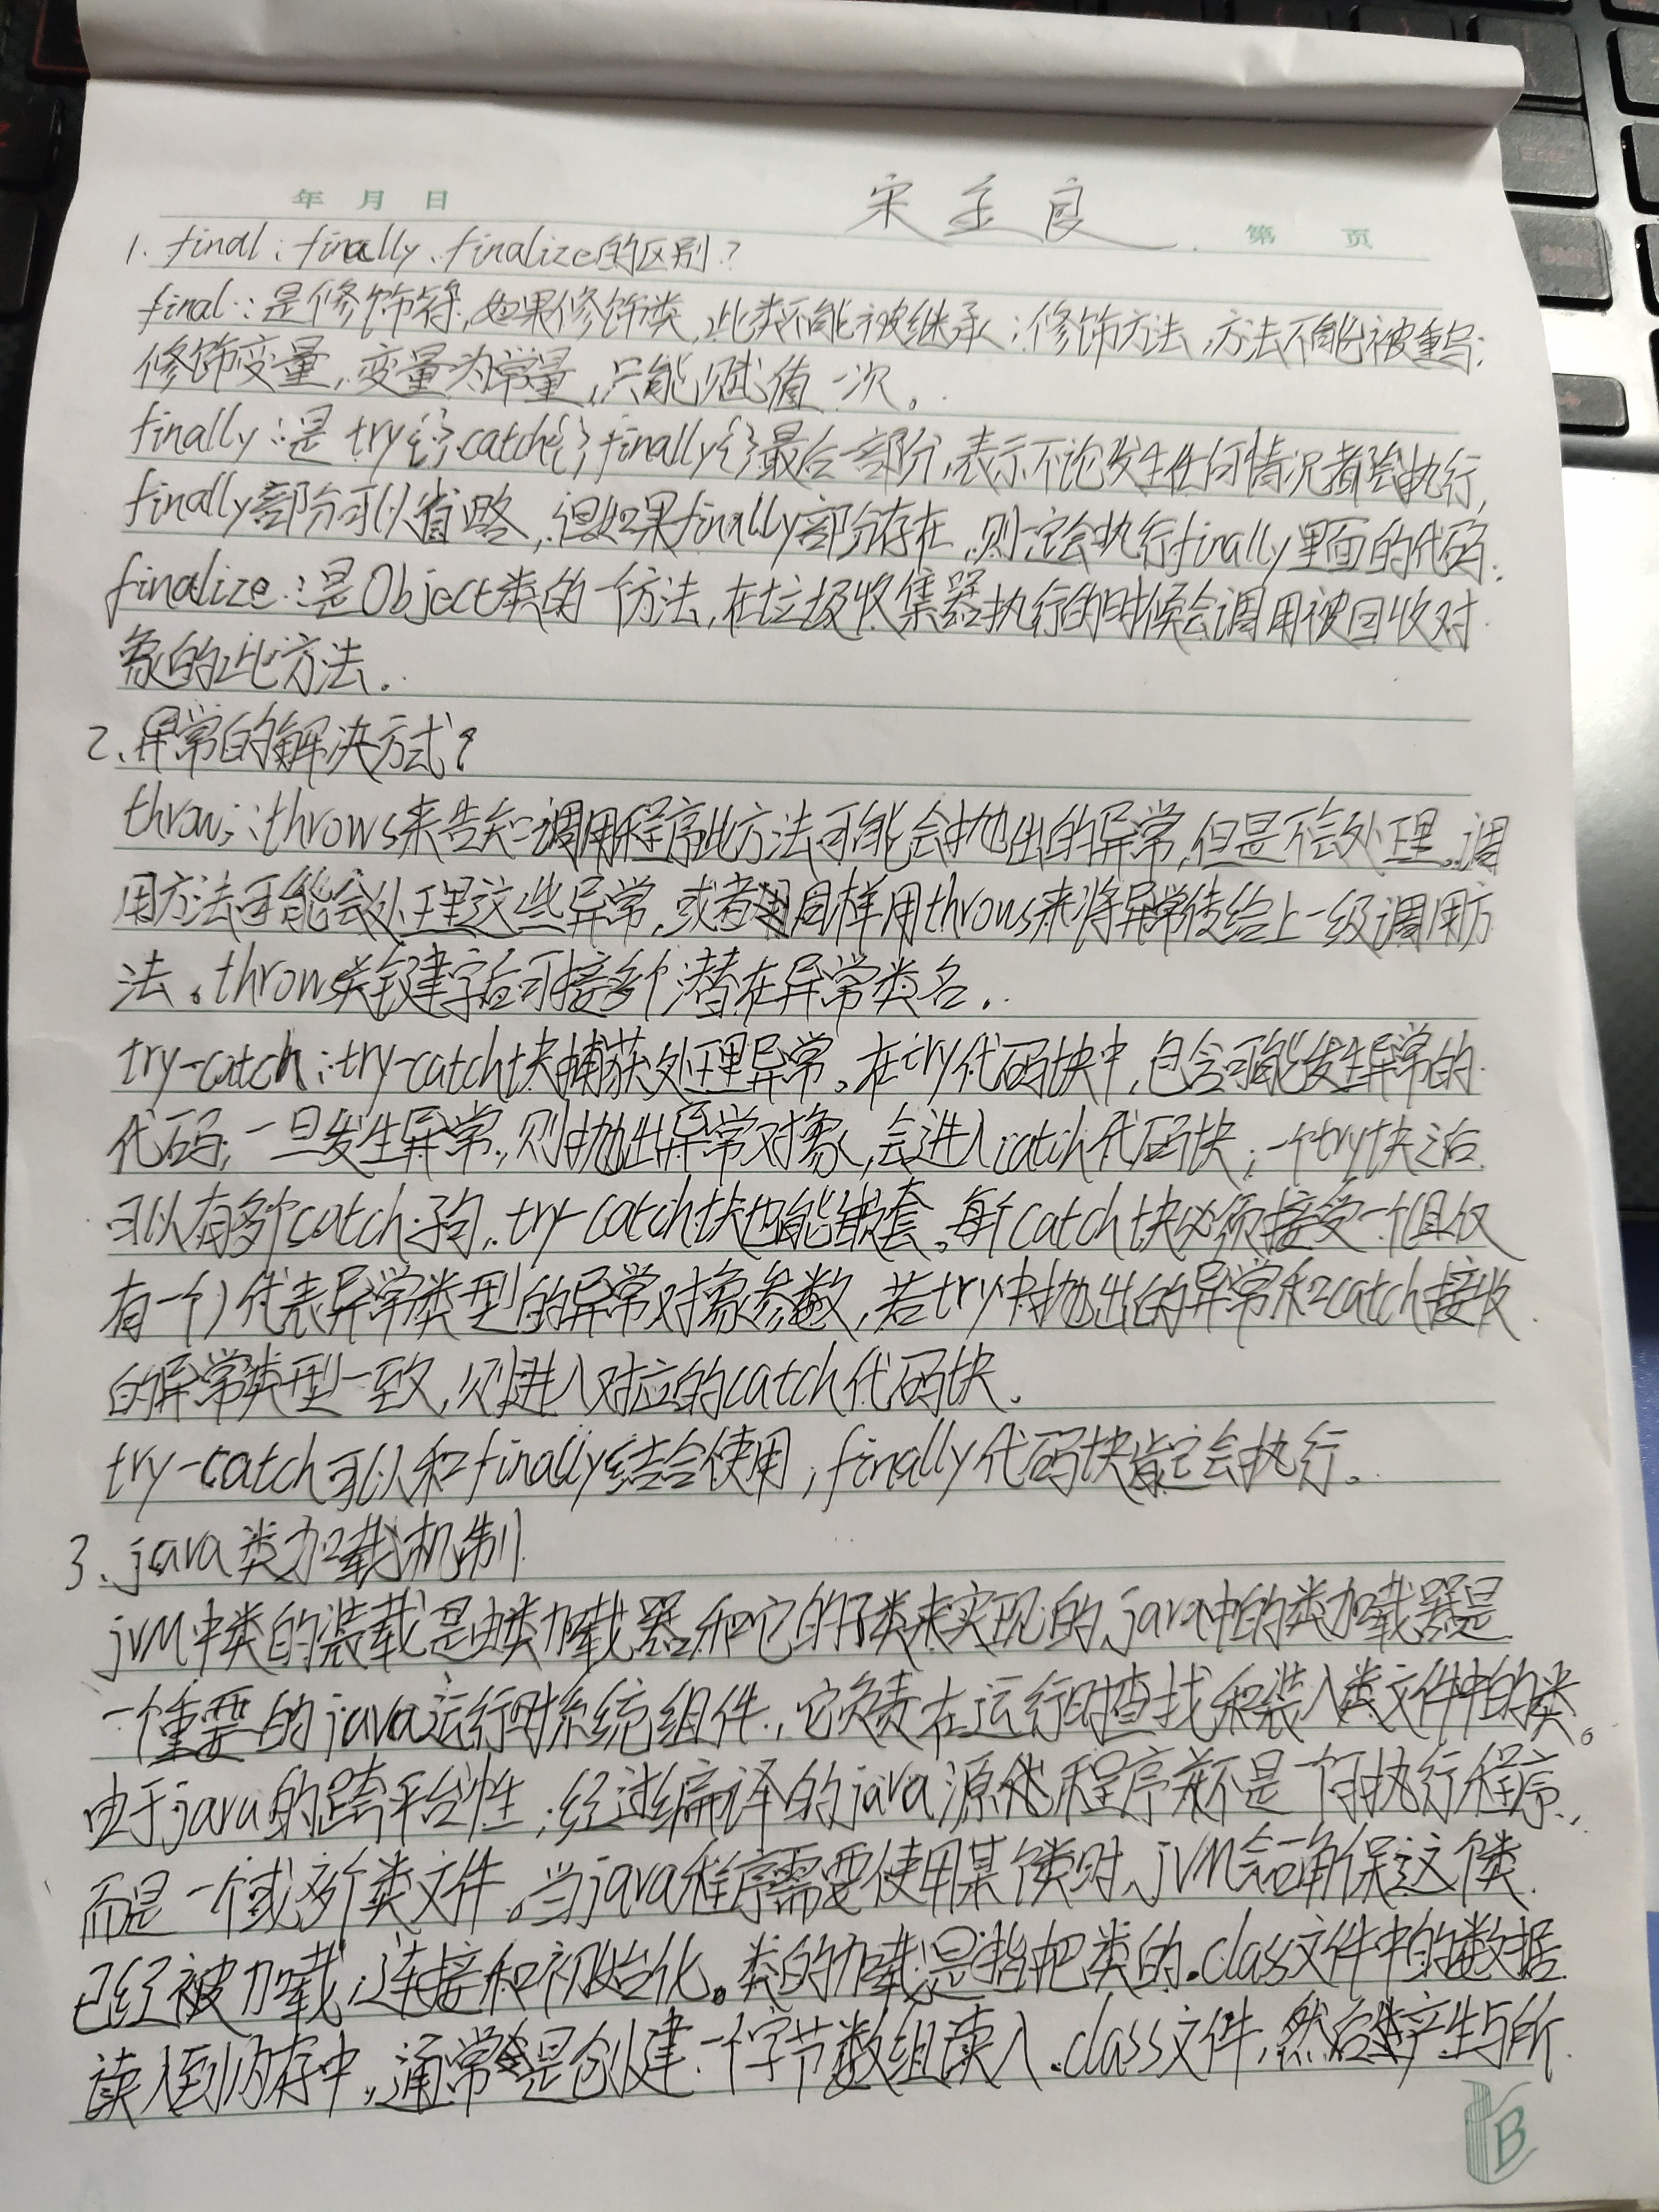 年 月 日 宋 良
第 页
1. final、finally、finalize的区别?
final:是修饰符,如果修饰类,此类不能被继承;修饰方法,方法不能被重写;
修饰变量,变量为常量,只能赋值一次。
finally:是try{}catch{}finally{}最后一部分,表示不论发生任何情况都会执行,
finally部分可以省略,但如果finally部分存在,则一定会执行finally里面的代码.
finalize:是Object类的一个方法,在垃圾收集器执行的时候会调用被回收对
象的此方法.
2、异常的解决方式?
throws:throws来告知调用程序此方法可能会抛出的异常,但是不会处理。调
用方法可能会处理这些异常,或者同样用throws来将异常传给上一级调用方
法。throws关键字后可接多个潜在异常类名.
try-catch:try-catch块捕获处理异常。在try代码块中,包含可能发生异常的
代码;一旦发生异常,则抛出异常对象,会进入catch代码块;一个try块之后
可以有多个catch子句.try-catch块也能嵌套。每个catch块必须接受一个(且仅
有一个)代表异常类型的异常对象参数,若try中抛出的异常和catch接收
的异常类型一致,则进入对应的catch代码块。
try-catch可以和finally结合使用,finally代码块肯定会执行。
3、java类加载机制
jvM中类的装载是由类加载器和它的子类来实现的,java中的类加载器是
一个重要的java运行时系统组件,它负责在运行时查找和装入类文件中的类。
由于java的跨平台性,经过编译的java源代程序并不是一个可执行程序,
而是一个或多个类文件。当java程序需要使用某个类时,jVM会确保这个类
已经被加载,连接和初始化。类的加载是指把类的.class文件中的数据
读入到内存中,通常是创建一个字节数组读入.class文件,然后产生与所
B